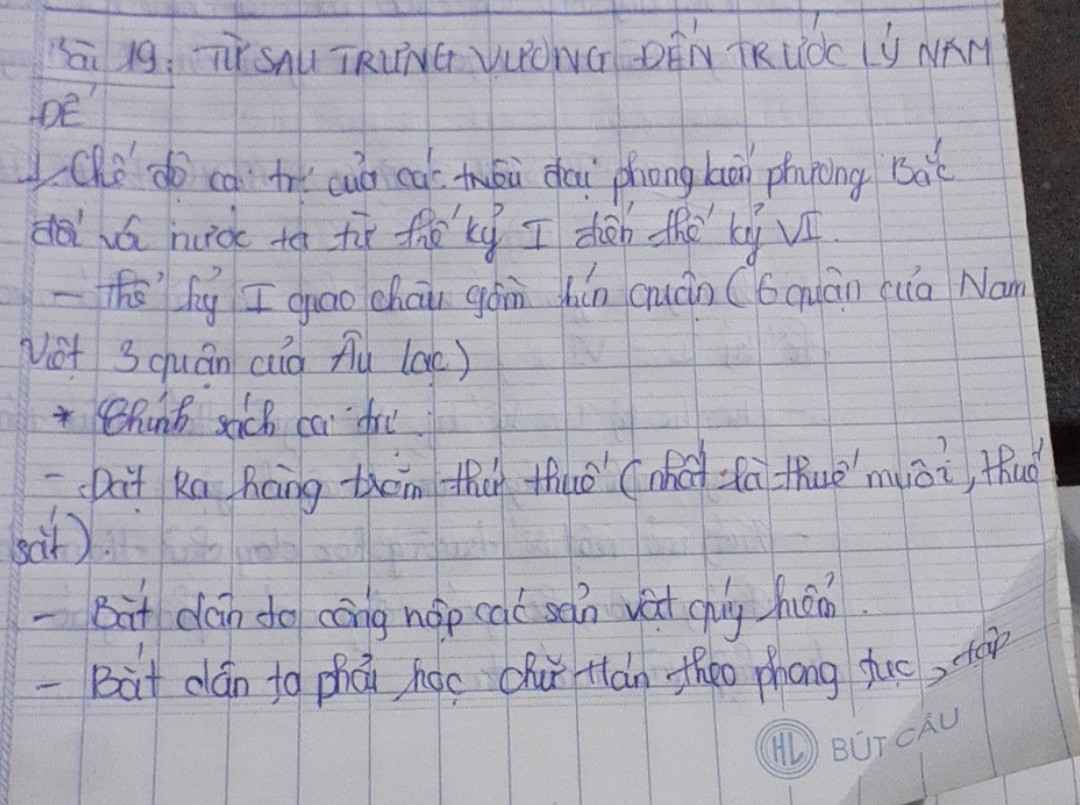 Bài 19: TỪ SAU TRƯNG VƯƠNG ĐẾN TRƯỚC LÝ NAM
ĐẾ
1. Chế độ cai trị của các triều đại phong kiến phương Bắc
đối vố nước ta từ thế kỷ I đến thế kỷ VI.
- Thế kỷ I giao châu gồm chín quận (6 quận của Nam
Việt 3 quận của Âu lạc)
* Chính sách cai trị.
- Đặt Ra hàng trăm thứ thuế (nhất là thuế muối, thuế
sắt).
- Bắt dân ta cống nộp các sản vật quý hiếm.
- Bắt dân ta phải học chữ Hán theo phong tục,
HL BÚT CẦU